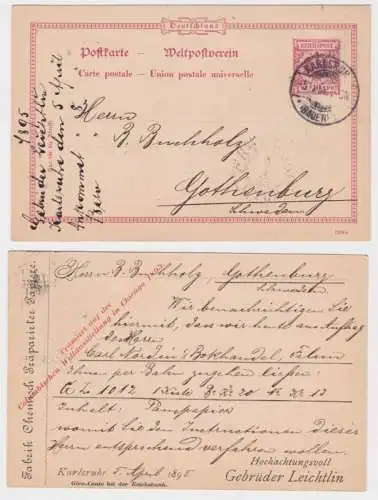 Deutschland
Postkarte – Weltpostverein
Carte postale – Union postale universelle
REICHSPOST
KARLSRUHE
(BADEN)
Herrn
B. Buchholz,
Gothenburg
Schweden
1895
Gebrüder Leichtlin
Karlsruhe den 5 April
Herrn B. Buchholz, Gothenburg
Schweden
Wir benachrichtigen Sie
hiermit, dass wir heute im Auftrag
des Herrn
Carl Nordin's Bokhandel, Falun
Ihnen per Bahn zugehen liessen:
1012 1 Kiste
Inhalt: Pauspapier
womit Sie den Instructionen dieses
Herrn entsprechend verfahren wollen.
Hochachtungsvoll
Gebrüder Leichtlin
Karlsruhe 5. April 1895
Giro-Conto bei der Reichsbank.
Fabrik Chemisch Präparirter Papiere.
Prämiirt auf der
Columbischen Weltausstellung in Chicago 1893.